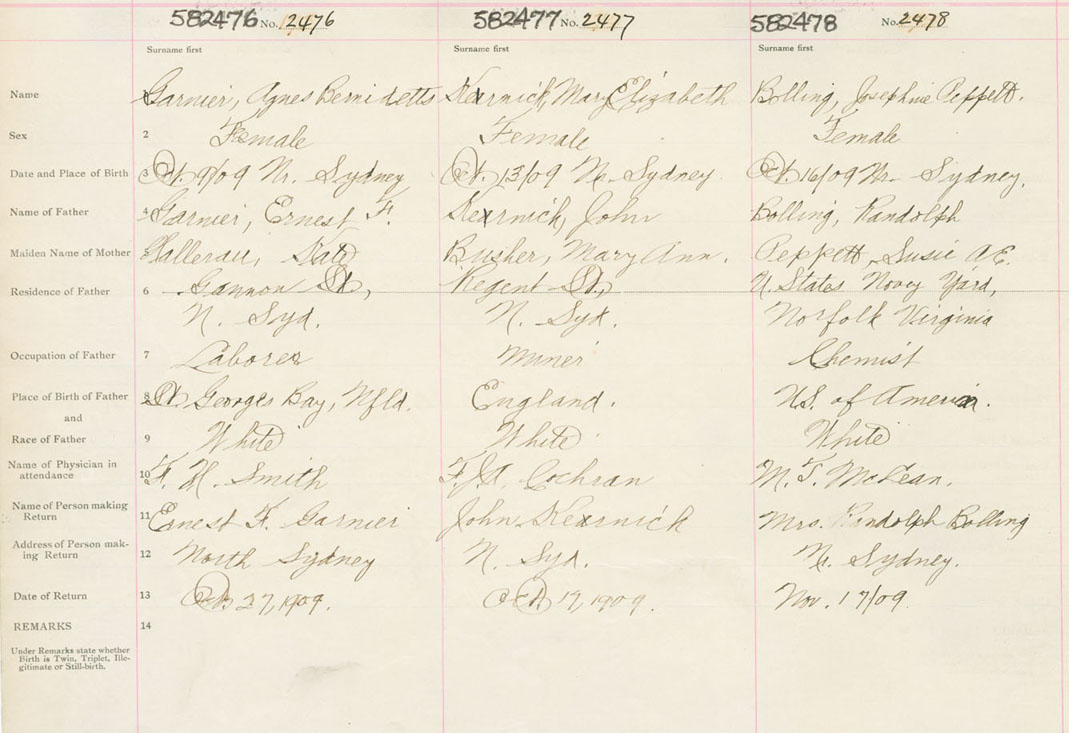 582476 No. 2476 582477 No. 2477 582478 No. 2478
Surname first Surname first Surname first
Name 1 Garnier, Agnes Bernidetts Kearnick, Mary Elizabeth Bolling, Josephine Peppett.
Sex 2 Female Female Female
Date and Place of Birth 3 Oct. 9/09 Nr. Sydney Oct. 13/09 N. Sydney Oct. 16/09 Nr. Sydney.
Name of Father 4 Garnier, Ernest F. Kearnick, John Bolling, Randolph
Maiden Name of Mother 5 Kate Busher, Mary Ann. Peppett, Susie A.E.
Residence of Father 6 Gannon St, Regent St, U. States Navey Yard,
N. Syd. N. Syd. Norfolk Virginia
Occupation of Father 7 Laborer Miner Chemist
Place of Birth of Father 8 St. Georges Bay, Nfld. England. U.S. of America.
and
Race of Father 9 White White White
Name of Physician in
attendance 10 F. H. Smith F.J.A. Cochran M. T. McLean.
Name of Person making
Return 11 Ernest F. Garnier John Kearnick Mrs. Randolph Bolling
Address of Person mak-
ing Return 12 North Sydney N. Syd. N. Sydney.
Date of Return 13 Oct. 27, 1909. Oct 19, 1909. Nov. 17/09.
REMARKS 14
Under Remarks state whether
Birth is Twin, Triplet, Ille-
gitimate or Still-birth.